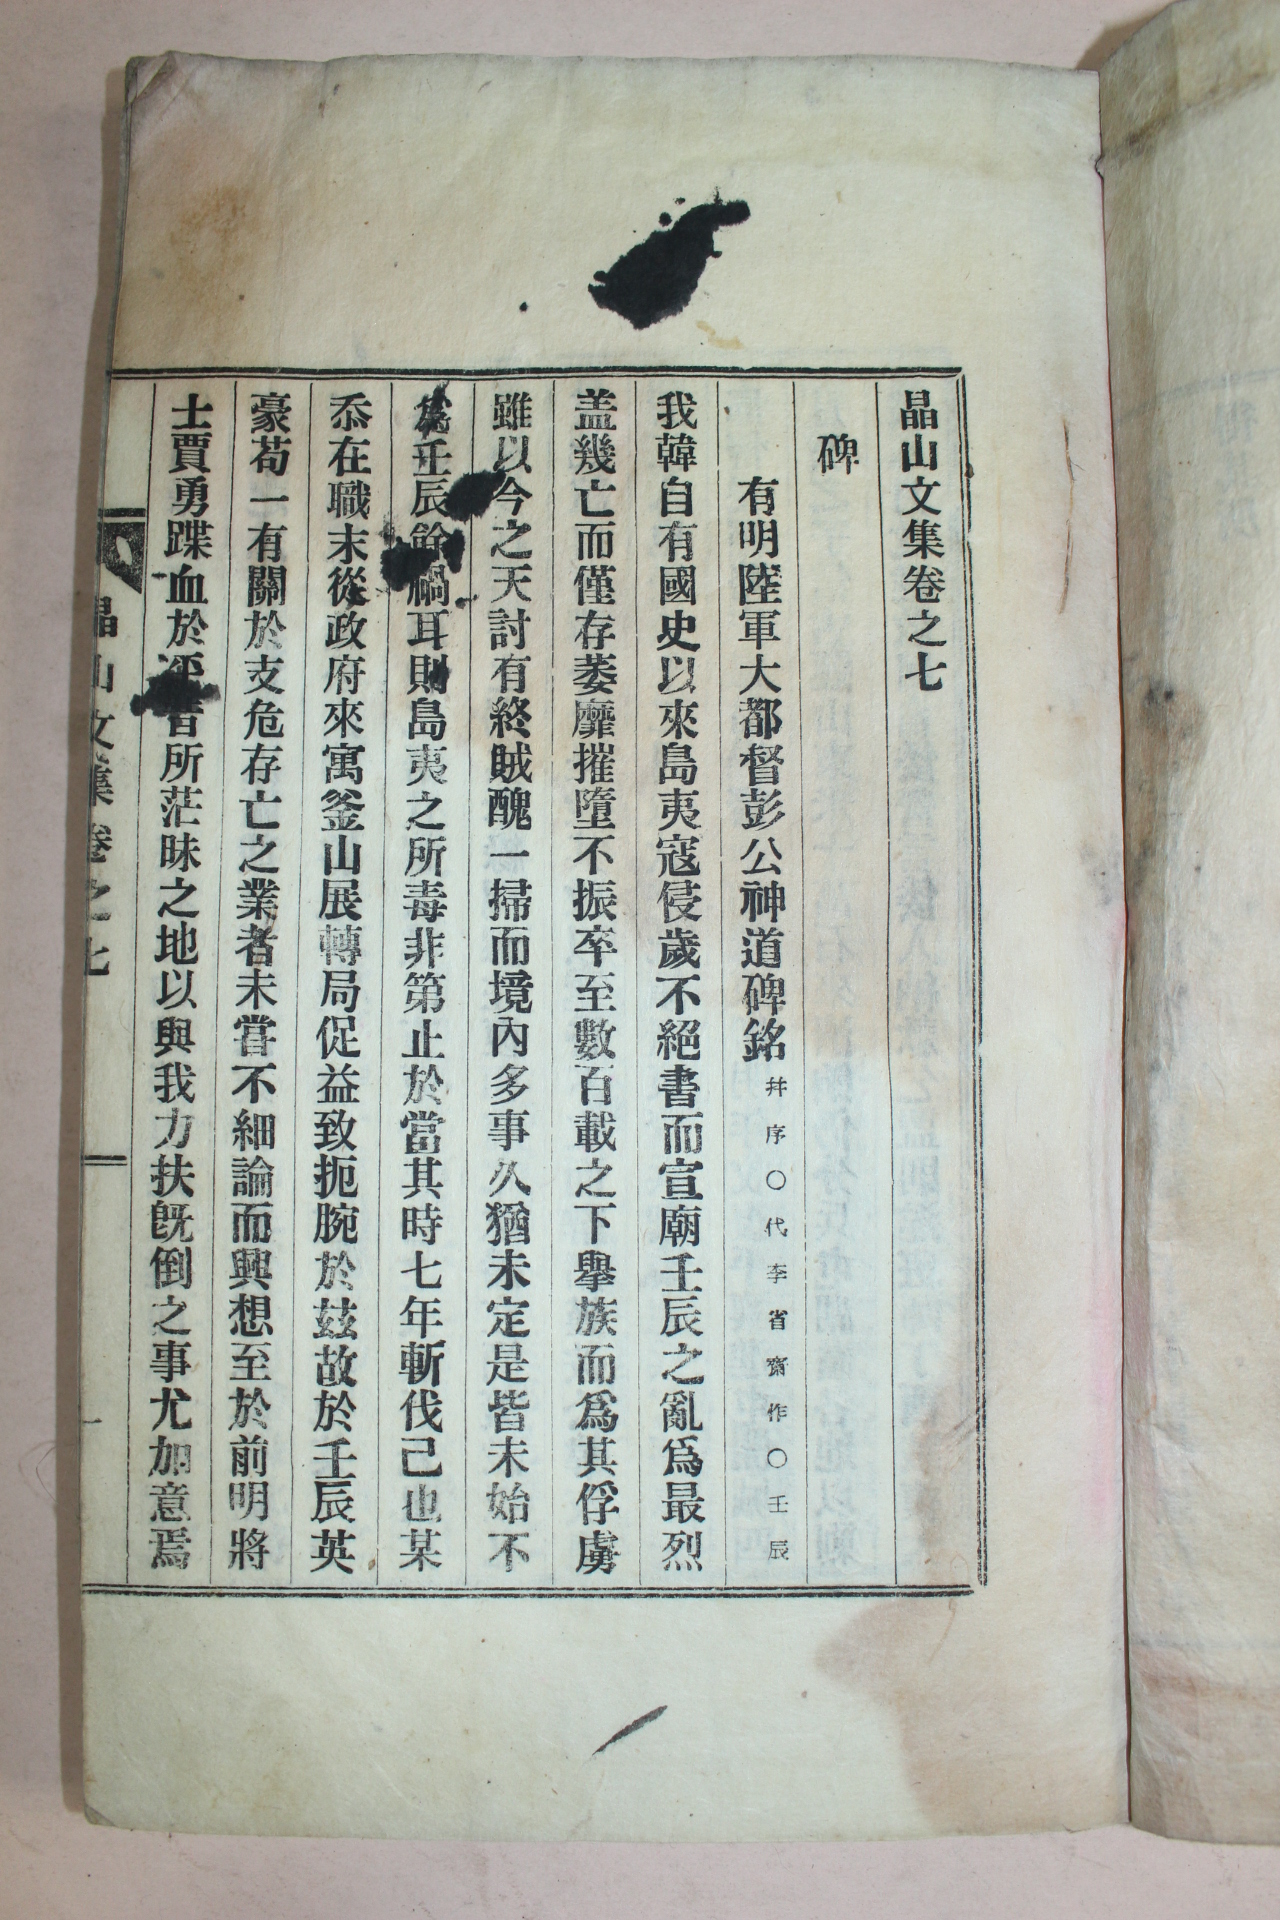 晶山文集卷之七
碑
有明陸軍大都督彭公神道碑銘 幷序○代李省齋作○壬辰
我韓自有國史以來島夷寇侵歲不絕書而宣廟壬辰之亂爲最烈
盖幾亡而僅存萎靡摧墮不振卒至數百載之下擧族而爲其俘虜
雖以今之天討有終賊醜一掃而境內多事久猶未定是皆未始不
爲壬辰餘禍耳則島夷之所毒非第止於當其時七年斬伐己也某
忝在職末從政府來寓釜山展轉局促益致扼腕於玆故於壬辰英
豪苟一有關於支危存亡之業者未嘗不細論而興想至於前明將
士賈勇蹀血於平昔所茫昧之地以與我力扶旣倒之事尤加意焉
晶山文集卷之七 一